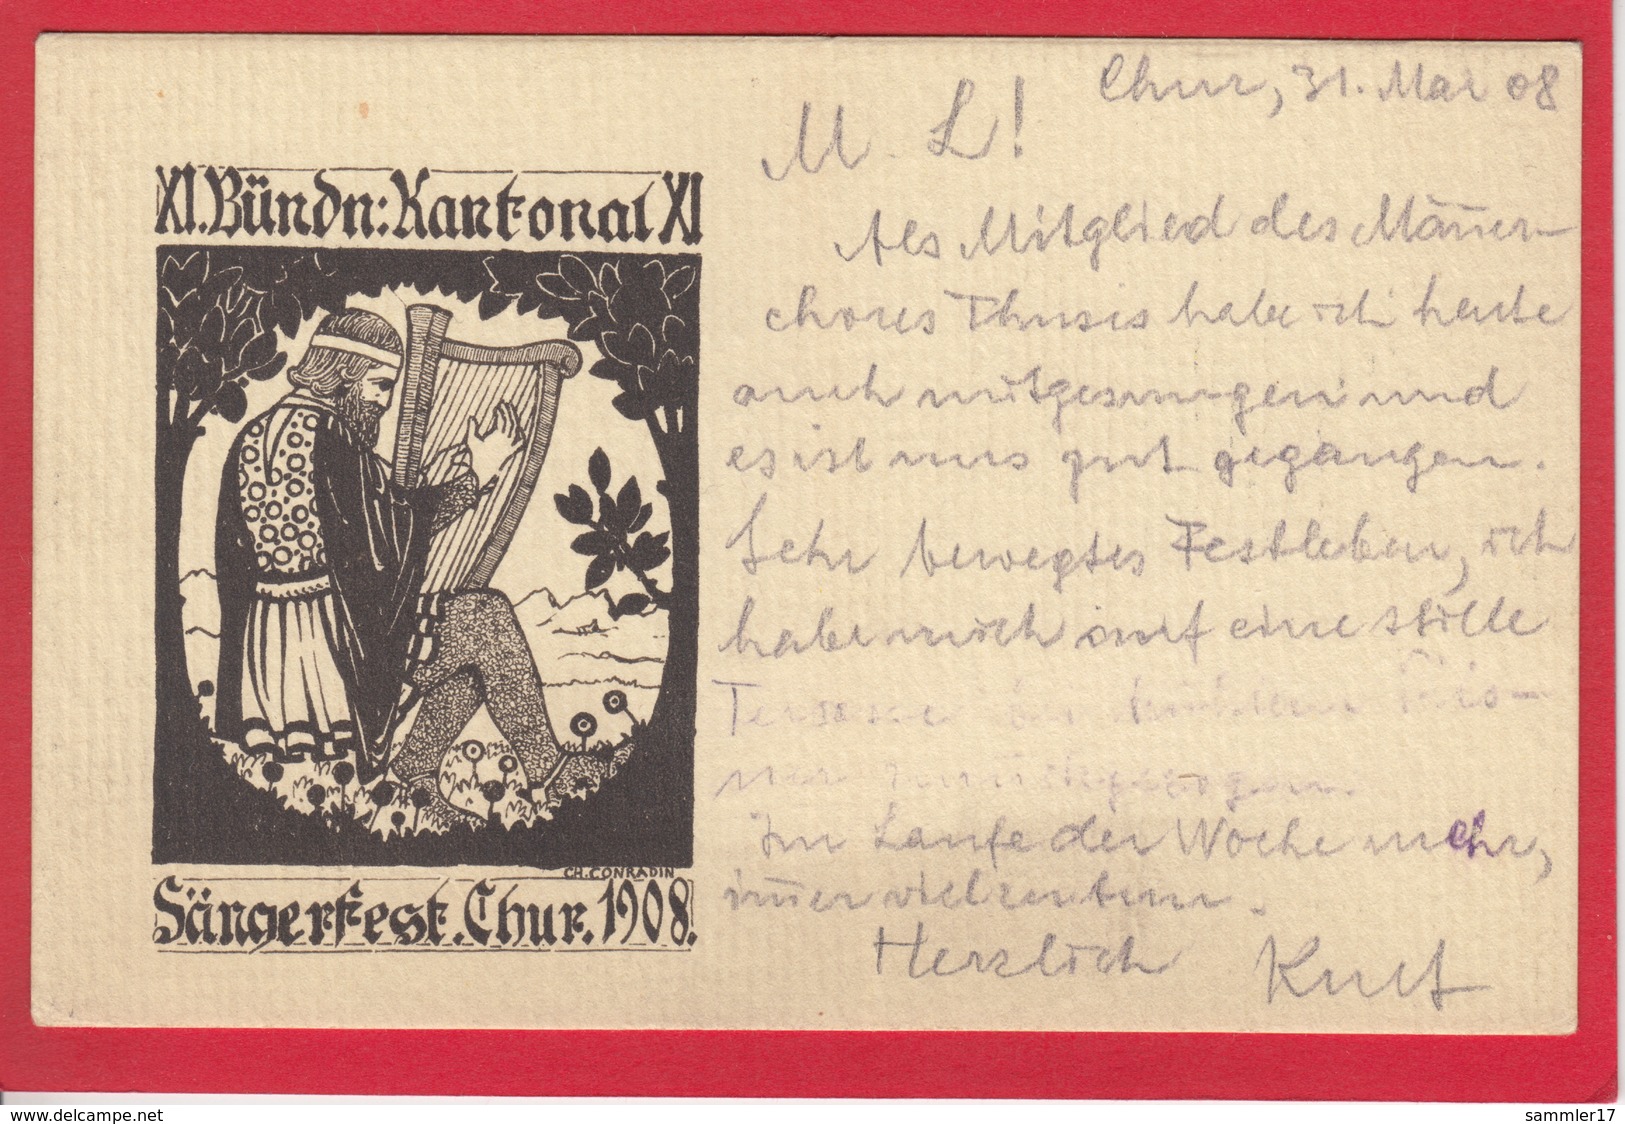 XI. Bündn: Kantonal XI
CH. CONRADIN
Sängerfest. Chur. 1908.
Chur, 31. Mai 08
M. L!
Als Mitglied des Män̄er-
chores Thusis habe ich heute
auch mitgesungen und
es ist uns gut gegangen.
Sehr bewegtes Festleben, ich
habe mich auf eine stille
Terrasse
zurückgezogen.
Im Laufe der Woche mehr,
im̄er
Herzlich
www.delcampe.net
sammler17